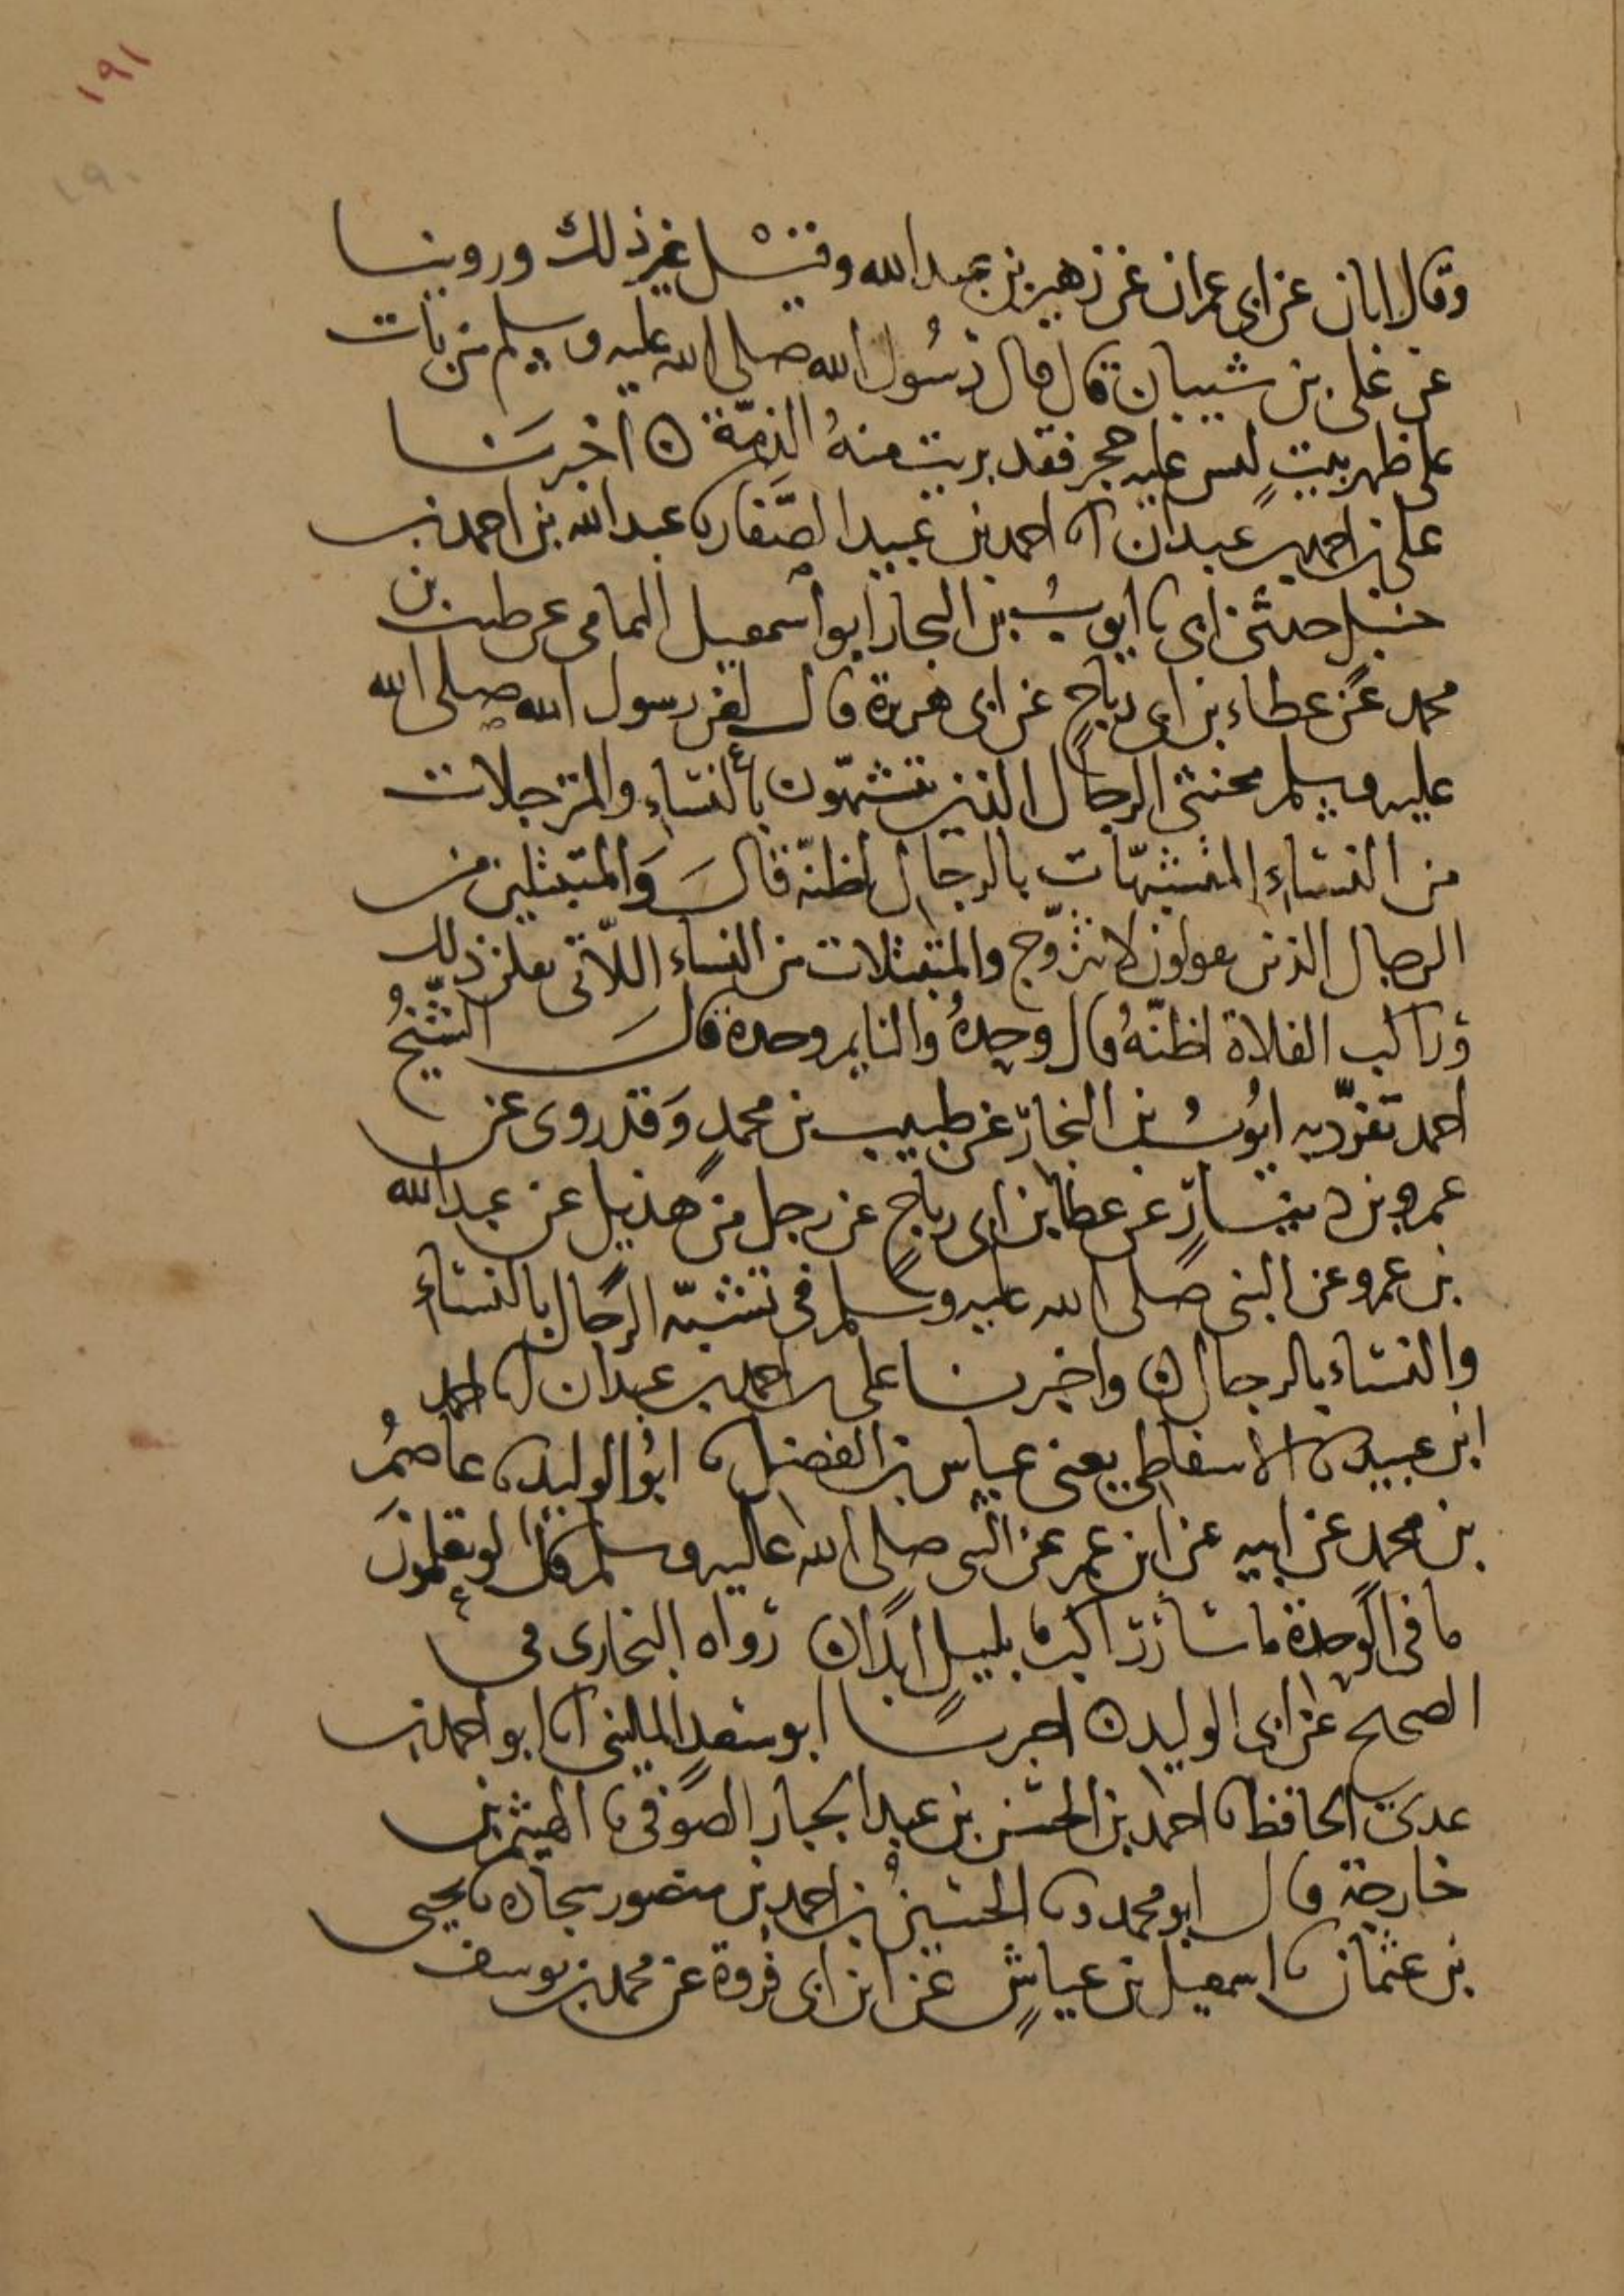 ١٩١
١٩٠
وقال ابان عن ابى عمران عن زهير بن عبد الله وقيل غير ذلك وروينا
عن على بن شيبان قال قال رسول الله صلى الله عليه وسلم من بات
على ظهر بيت ليس عليه حجر فقد بريت منه الذمّة ه اخبرنا
على بن احمد بن عبدان انا احمد بن عبيد الصّفار نا عبد الله بن احمد بن
حنبل حدثنى ابى نا ايوب بن النجار ابو اسمعيل اليمامى عن طيب بن
محمد عن عطاء بن ابى رباح عن ابى هريرة قال لعن رسول الله صلى الله
عليه وسلم مخنثى الرجال الذين يتشبهّون بالنساء والمترجلات
من النساء المتشبهّات بالرجال اظنّه قال والمتبتلين من
الرجال الذين يقولون لا نتزوّج والمتبتلات من النساء اللّاتى يقلن ذلك
وراكب الفلاة اظنّهُ قال وحدهُ والنايم وحده قال الشّيخُ
احمد تفرّد به ايوبُ بن النجار عن طبيب بن محمدٍ وَقد روى عن
عمرو بن دينارٍ عن عطا بن ابى رباحٍ عن رجل من هذيل عن عبد الله
بن عمرو عن النبى صلى الله عليه وسلم فى تشبّه الرجال بالنساءِ
والنساء بالرجال ه واخبرنا على بن احمد بن عبدان انا احمد
ابن عبيد نا الاسفاطى يعنى عباس بن الفضل نا ابُو الوليد نا عاصمُ
بن محمد عن ابيه عن ابن عمر عن النبى صلى الله عليه وسلم قال لو يعلمونَ
ما فى الوحدة ما سار راكب بليلٍ ابدًا ه رواه البخارى فى
الصحيح عن ابى الوليد ه اخبرنا ابو سعدٍ المالينى انا ابو احمد بن
عدىّ الحافظ نا احمد بن الحسن بن عبد الجبار الصوفى نا الهيثم بن
خارجة قال ابو محمد ونا الحسينُ بن احمد بن منصور سجاده نا يحيى
بن عثمان نا اسمعيل بن عياشٍ عن ابن ابى فروة عن محمد بن يوسف